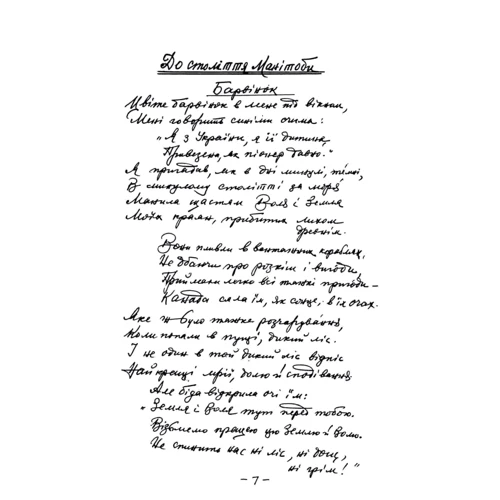 До століття Манітоби
Барвінок
Цвіте барвінок в мене під вікном,
Мені говорить синіми очима:
"Я з України, я її дитина,
Привезена, як піонер давно."
Я пригадав, як в дні минулі, темні,
В минулому столітті за моря
Манила щастям Воля і Земля
Моїх краян, прибитих лихом
древнім.
Вони пливли в вантажних кораблях,
Не дбаючи про розкіш і вигоди,
Приймали легко всі тяжкі пригоди –
Канада сяла їм, як сонце, в їх очах.
Яке ж було тяжке розчарування,
Коли попали в пущі, дикий ліс.
І не один в той дикий ліс відніс
Найкращі мрії, долю й сподівання.
Але біда відкрила очі їм:
"Земля і Воля тут перед тобою.
Візьмемо працею цю Землю й Волю.
Не спинить нас ні ліс, ні дощ,
ні грім!"
– 7 –